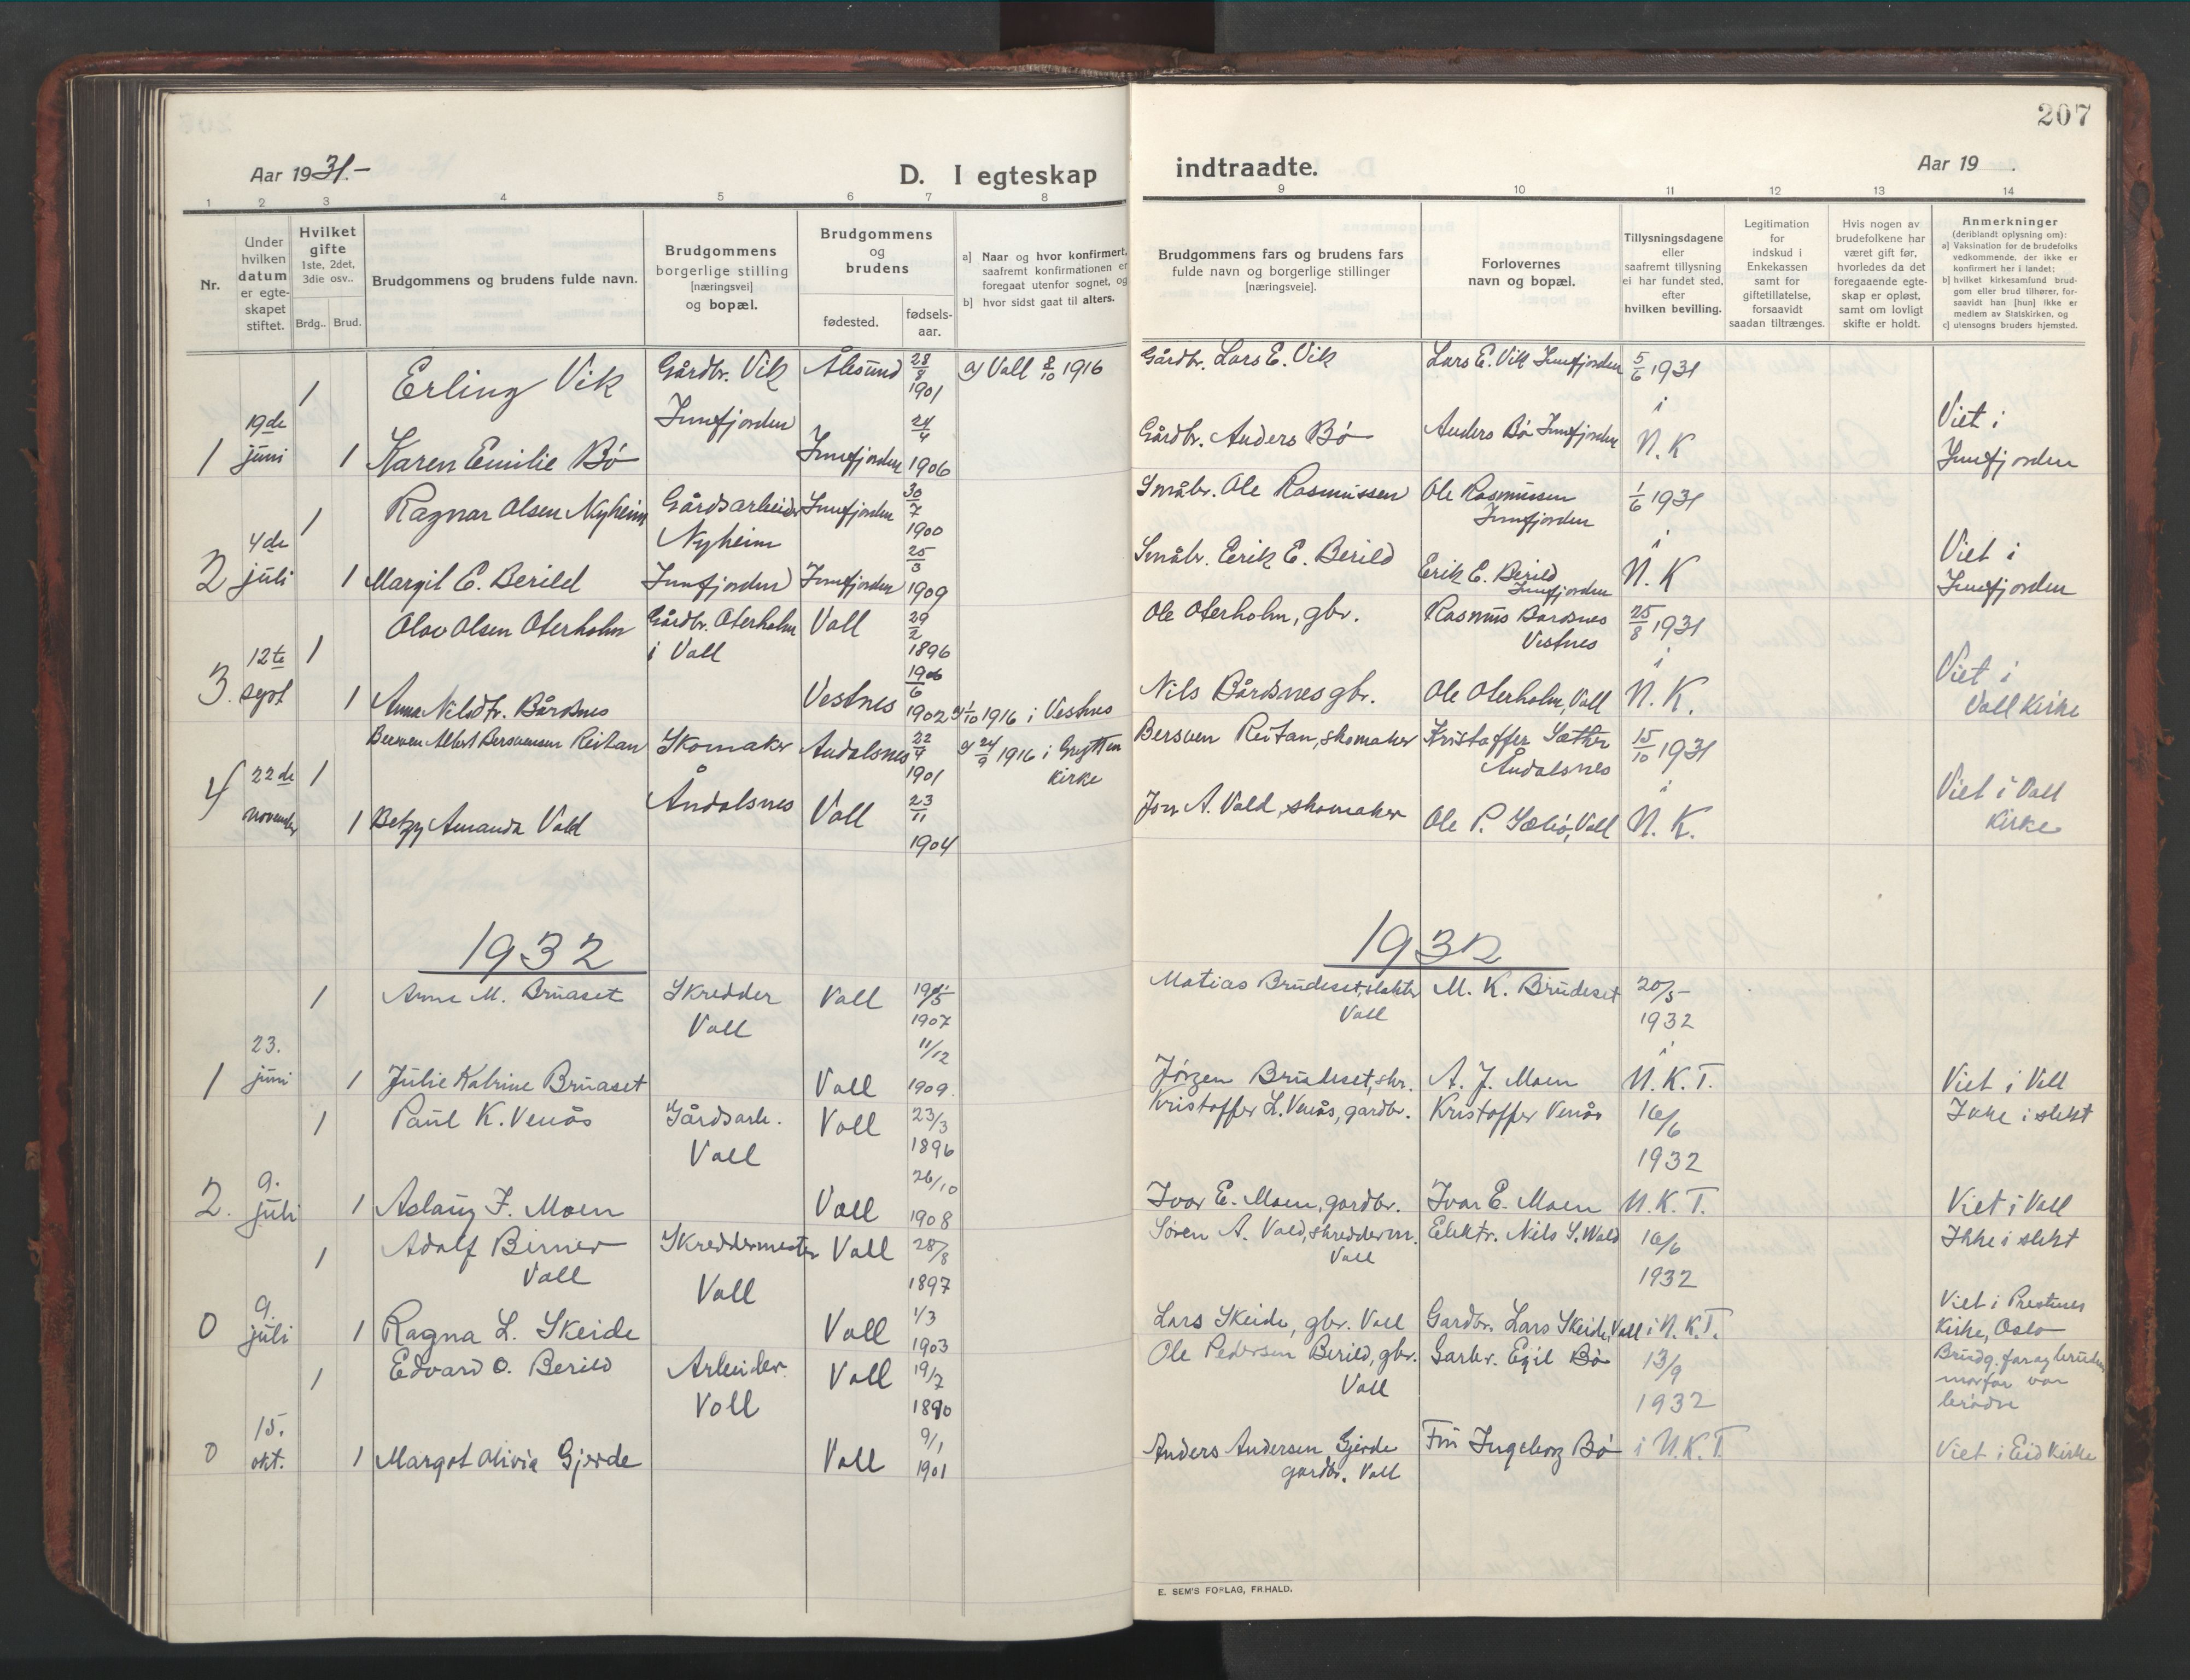 207
Aar 1931.-
D. I egteskap
indtraadte.
Aar 19 .
1 2 3 4 5 6 7 8 9 10 11 12 13 14
Nr.
Under hvilken datum er egte-skapet stiftet.
Hvilket gifte
1ste, 2det, 3die osv..
Brdg.. Brud.
Brudgommens og brudens fulde navn.
Brudgommens
borgerlige stilling
[næringsvei]
og bopæl.
Brudgommens
og
brudens
fødested.
fødsels-
aar.
a] Naar og hvor konfirmert,
saafremt konfirmationen er
foregaat utenfor sognet, og
b] hvor sidst gaat til alters.
Brudgommens fars og brudens fars
fulde navn og borgerlige stillinger
[næringsveie].
Forlovernes
navn og bopæl.
Tillysningsdagene
eller
saafremt tillysning
ei har fundet sted,
efter
hvilken bevilling.
Legitimation
for
indskud i
Enkekassen
samt for
giftetillatelse,
forsaavidt
saadan tiltrænges.
Hvis nogen av
brudefolkene har
været gift før,
hvorledes da det
foregaaende egte-
skap er opløst,
samt om lovligt
skifte er holdt.
Anmerkninger
(deriblandt oplysning om):
a] Vaksination for de brudefolks
vedkommende, der ikke er
konfirmert her i landet;
b] hvilket kirkesamfund brud-
gom eller brud tilhører, for-
saavidt han [hun] ikke er
medlem av Statskirken, og
c] utensogns bruders hjemsted.
1 Erling Vik Gårdbr. Vik Ålesund 28/8 1901 a) Voll 8/10 1916 Gårdbr. Lars E. Vik Lars E. Vik Innfjorden 5/6 1931
Innfjorden
1 19de juni 1 Karen Emilie Bø Innfjorden 24/4 1906 Gårdbr. Anders Bø Anders Bø Innfjorden i N.K Viet i Innfjorden
1 Ragnar Olsen Nyheim Gårdsarbeider Innfjorden 30/7 1900 Småbr. Ole Rasmussen Ole Rasmussen Innfjorden 1/6 1931
Nyheim
2 4de juli 1 Margit E. Berild Innfjorden Innfjorden 25/3 1909 Småbr. Eerik E. Berild Erik E. Berild Innfjorden i N.K Viet i Innfjorden
1 Olav Olsen Oterholm Gårdbr. Oterholm i Voll Voll 29/2 1896 Ole Oterholm, gbr. Rasmus Bardsnes Vestnes 25/8 1931
3. 12te sept 1 Anna Nilsdtr. Bårdsnes Vestnes 1902 a) 1/10 1916 i Vestnes Nils Bårdsnes gbr. Ole Oterholm, Voll i N.K. Viet i Voll Kirke
1 Bersven Albert Bersvensen Reitan Skomaker Åndalsnes 1901 a) 24/9 1916 i Grytten kirke Bersven Reitan, skomaker Kristoffer Sæther Åndalsnes 15/10 1931
Åndalsnes
4 22de november 1 Betzy Amanda Vold Voll 23/11 1904 Jon A. Vold, skomaker Ole P. Voll i N.K. Viet i Voll Kirke
1932
1932
1 Arne M. Bruaset Skredder Voll Voll 1907 Matias Brudeset, Voll M. K. Brudeset 20/5- 1932
1 23. juni 1 Julie Katrine Bruaset Voll 11/12 1909. Jørgen Brudeset, skr. A. J. Moen i N.K.T. Viet i Voll
1 Paul K. Venås Gårdsarb. Voll Voll 23/3 1896 Kristoffer L. Venås, gardbr. Kristoffer Venås 16/6 1932 Ikke i slekt
2. 9. juli 1 Aslaug I. Moen Voll 26/10 1908 Ivar E. Moen, gardbr. Ivar E. Moen N.K.T. Viet i Voll
1 Adolf Birner Voll Skreddermester Voll Voll 28/8 1897 Søren A. Vold, skredderm. Voll Elektr. Nils S. Wold 16/6 1932 Ikke i slekt
0 9. juli 1 Ragna L. Skeide Voll 1/3 1903 Lars Skeide, gbr. Voll Gardbr. Lars Skeide, Voll i N.K.T. Viet i Kirke, Oslo
1 Edvard O. Berild Arbeider. Voll Voll 19/7 1890 Ole Pedersen Berild, gbr. Voll Garbr. Egil Bø 13/9 1932 Brudg. far og brudens morfar var brødre
0 15. okt. 1 Margot Olivia Gjerde Voll 9/1 1901 Anders Andersen Gjerde gardbr. Voll Fru Ingeborg Bø i N.K.T. Viet i Eid Kirke
E. SEM'S FORLAG, FR.HALD.